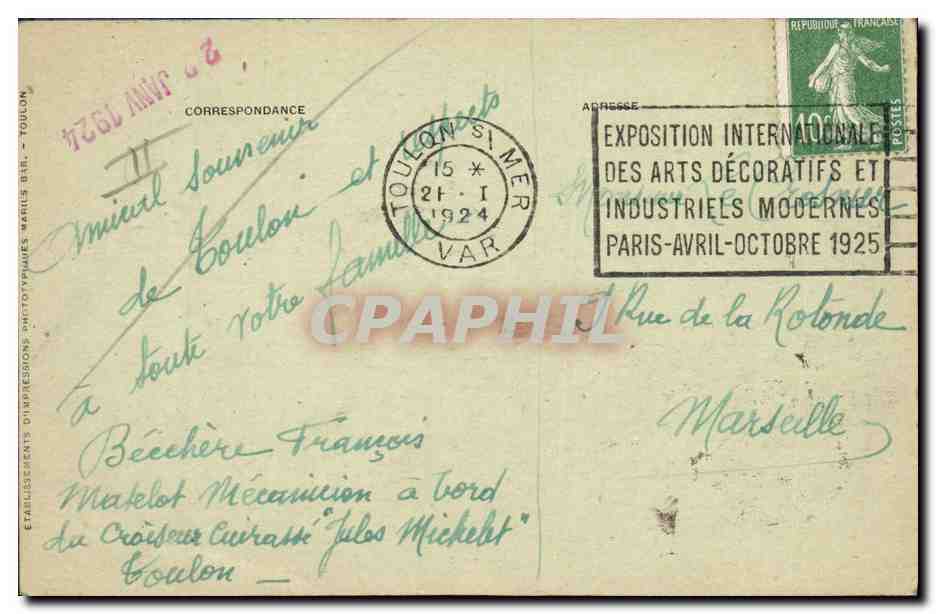 CORRESPONDANCE
22 JANV 1924
II
Amical souvenir
de Toulon et respects
à toute votre famille
Bécchère François
Matelot Mécanicien à bord
du Croiseur Cuirassé "Jules Michelet"
Toulon —
ÉTABLISSEMENTS D'IMPRESSIONS PHOTOTYPIQUES MARILS BAR. - TOULON
ADRESSE
REPUBLIQUE FRANÇAISE
10c
POSTES
TOULON S/ MER
15 *
21 - I
1924
VAR
EXPOSITION INTERNATIONALE
DES ARTS DÉCORATIFS ET
INDUSTRIELS MODERNES
PARIS-AVRIL-OCTOBRE 1925
Monsieur
Rue de la Rotonde
Marseille
CPAPHIL